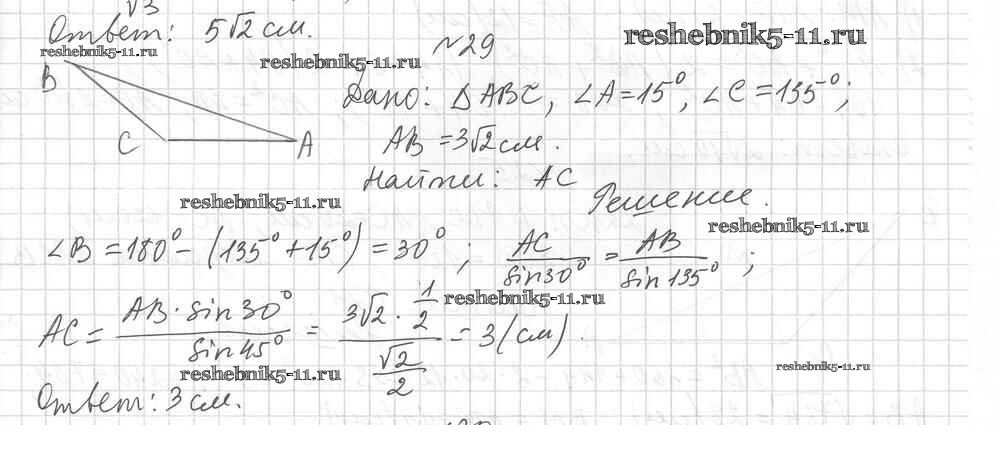 √3
Ответ: 5√2 см.
reshebnik5-11.ru
reshebnik5-11.ru
№29
reshebnik5-11.ru
B
C
A
Дано: △ABC, ∠A=15°, ∠C=135°;
AB=3√2 см.
Найти: AC
reshebnik5-11.ru
Решение.
reshebnik5-11.ru
∠B=180°-(135°+15°)=30°; AC/sin30°=AB/sin135°;
reshebnik5-11.ru
AC=AB·sin30°/sin45°=3√2·1/2/√2/2=3(см).
reshebnik5-11.ru
reshebnik5-11.ru
Ответ: 3 см.